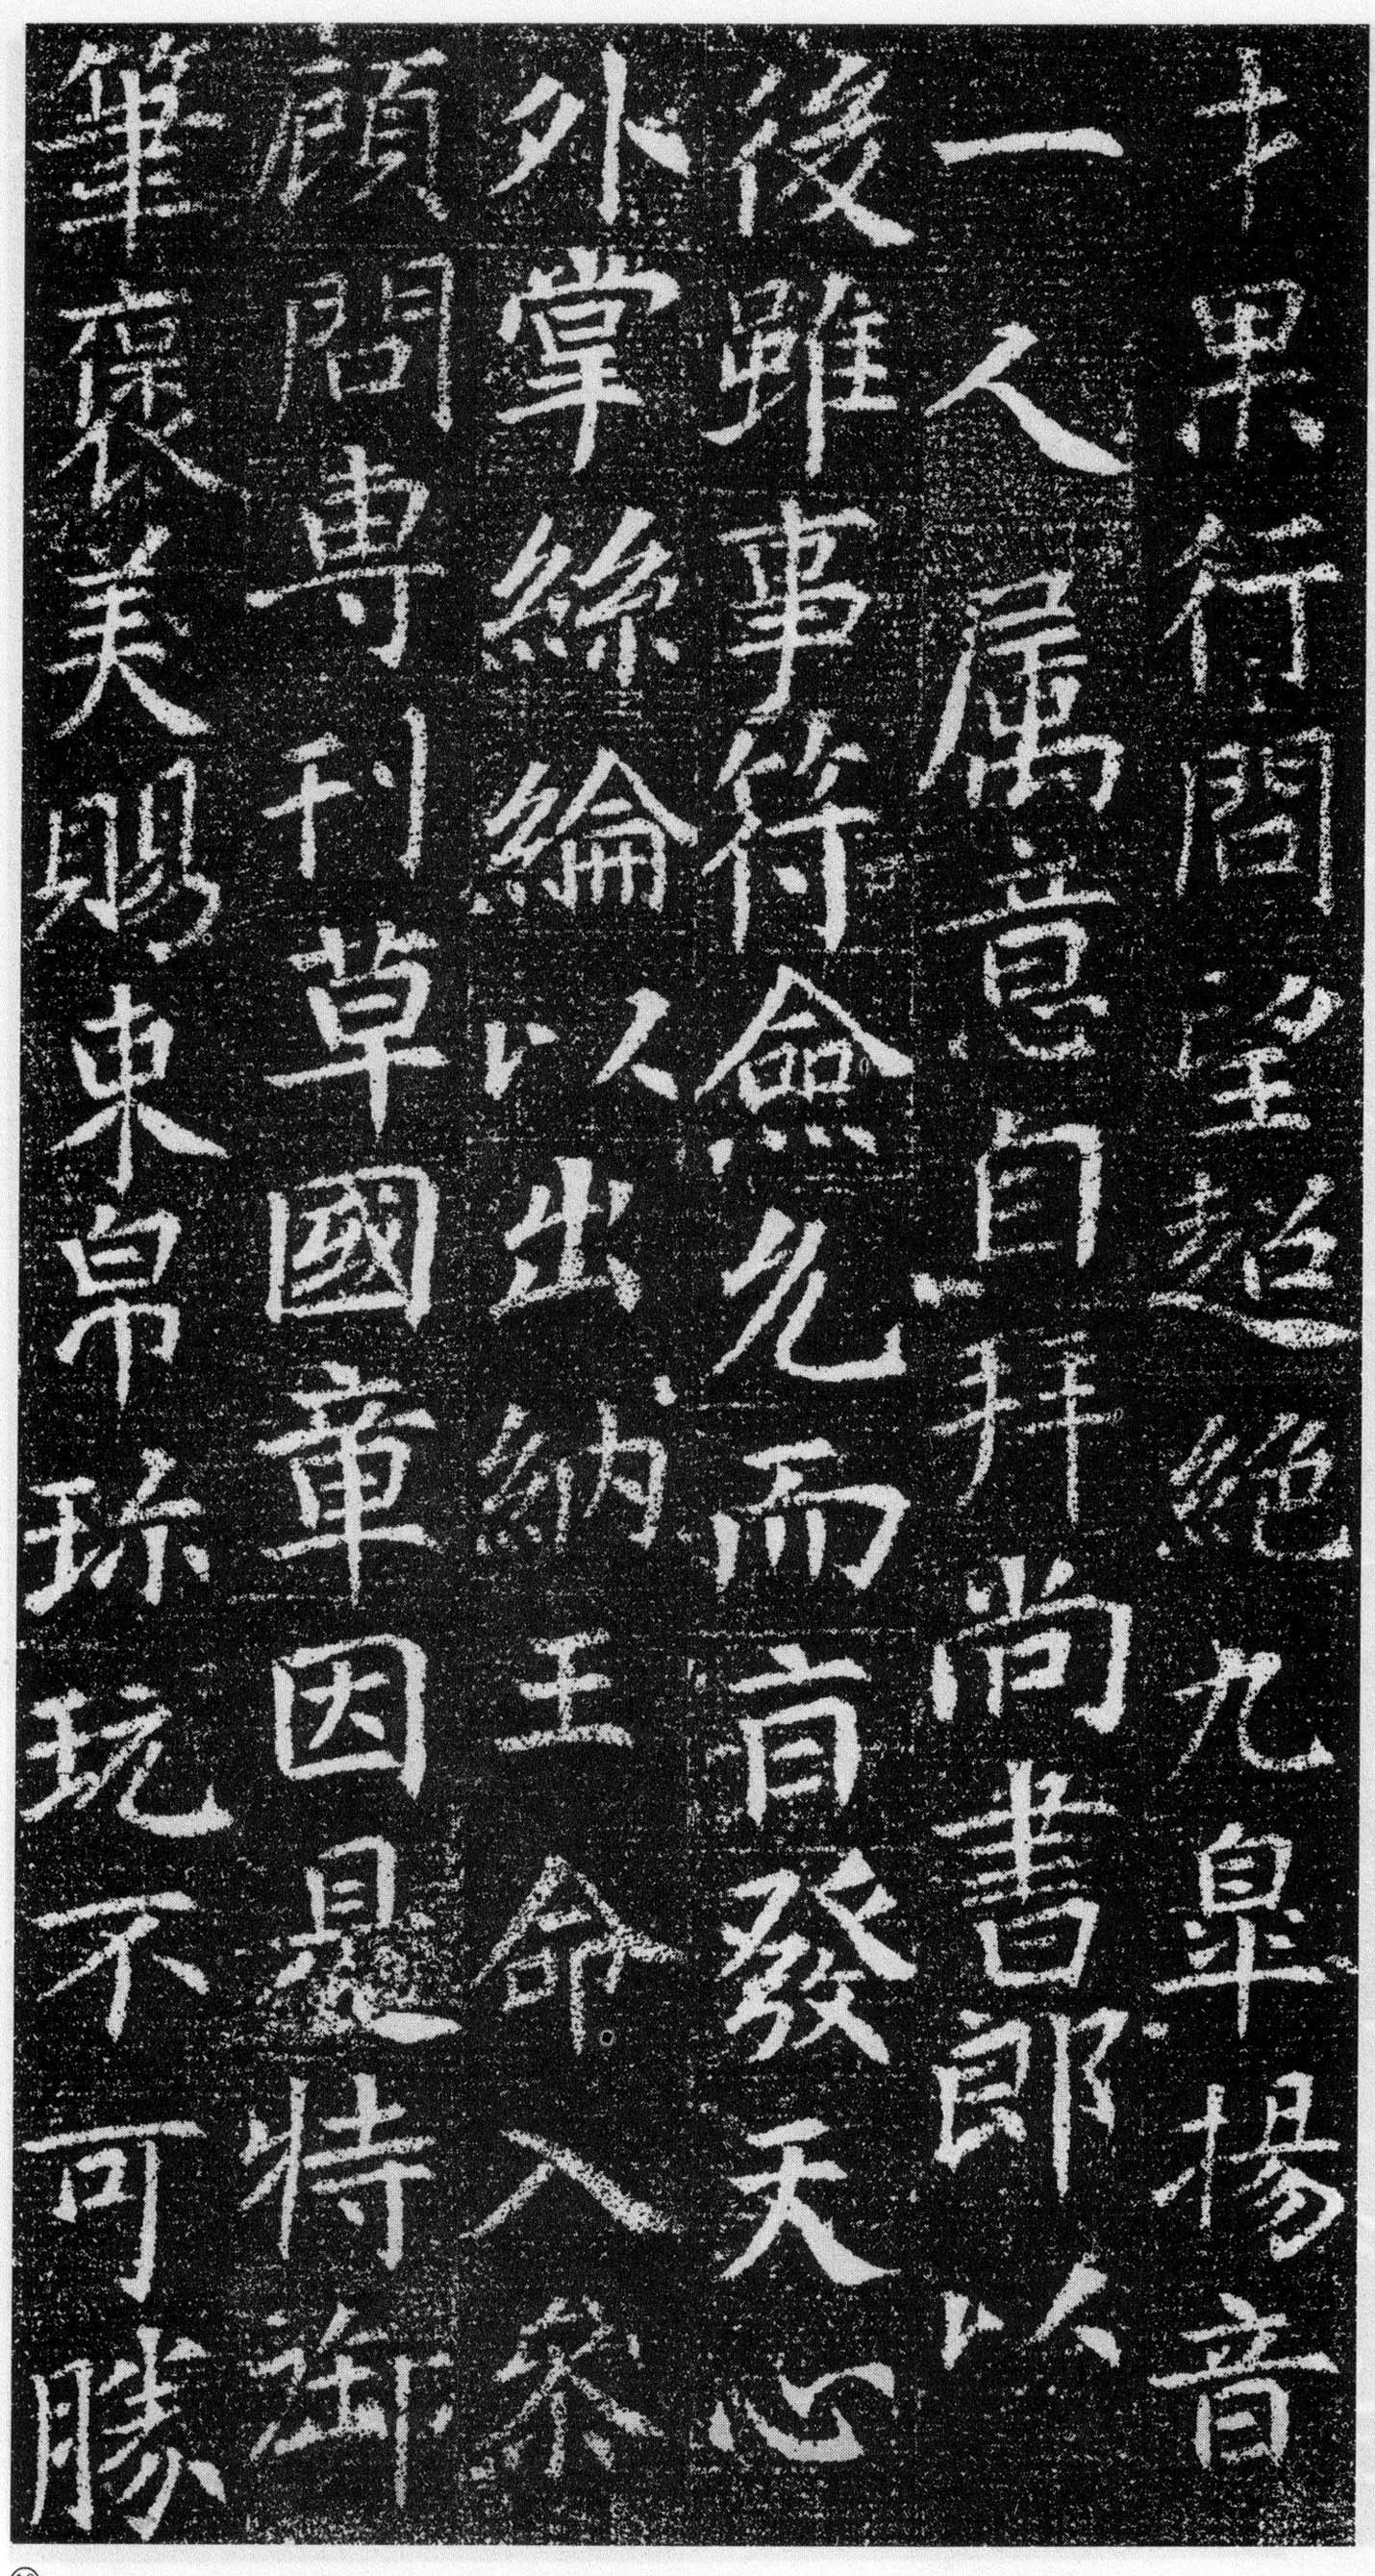 才果行問望超絕九皐揚音
一人属意自拜尚書郎以
後雖事符僉允而盲發天心
外掌絲綸以出納王命入叅
顧問専刊草國章因是特御
筆褒美賜束帛珎玩不可勝